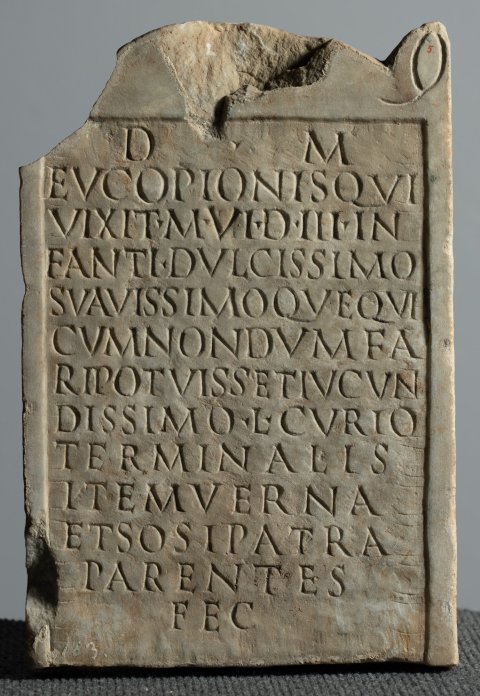 5
D · M
EVCOPIONISQVI
VIXIT·M·VI·D·III·IN
FANTI·DVLCISSIMO
SVAVISSIMOQVEQVI
CVMNONDVMFA
RIPOTVISSETIVCVN
DISSIMO·L·CVRIO
TERMINALIS
ITEMVERNA
ETSOSIPATRA
PARENTES
FEC